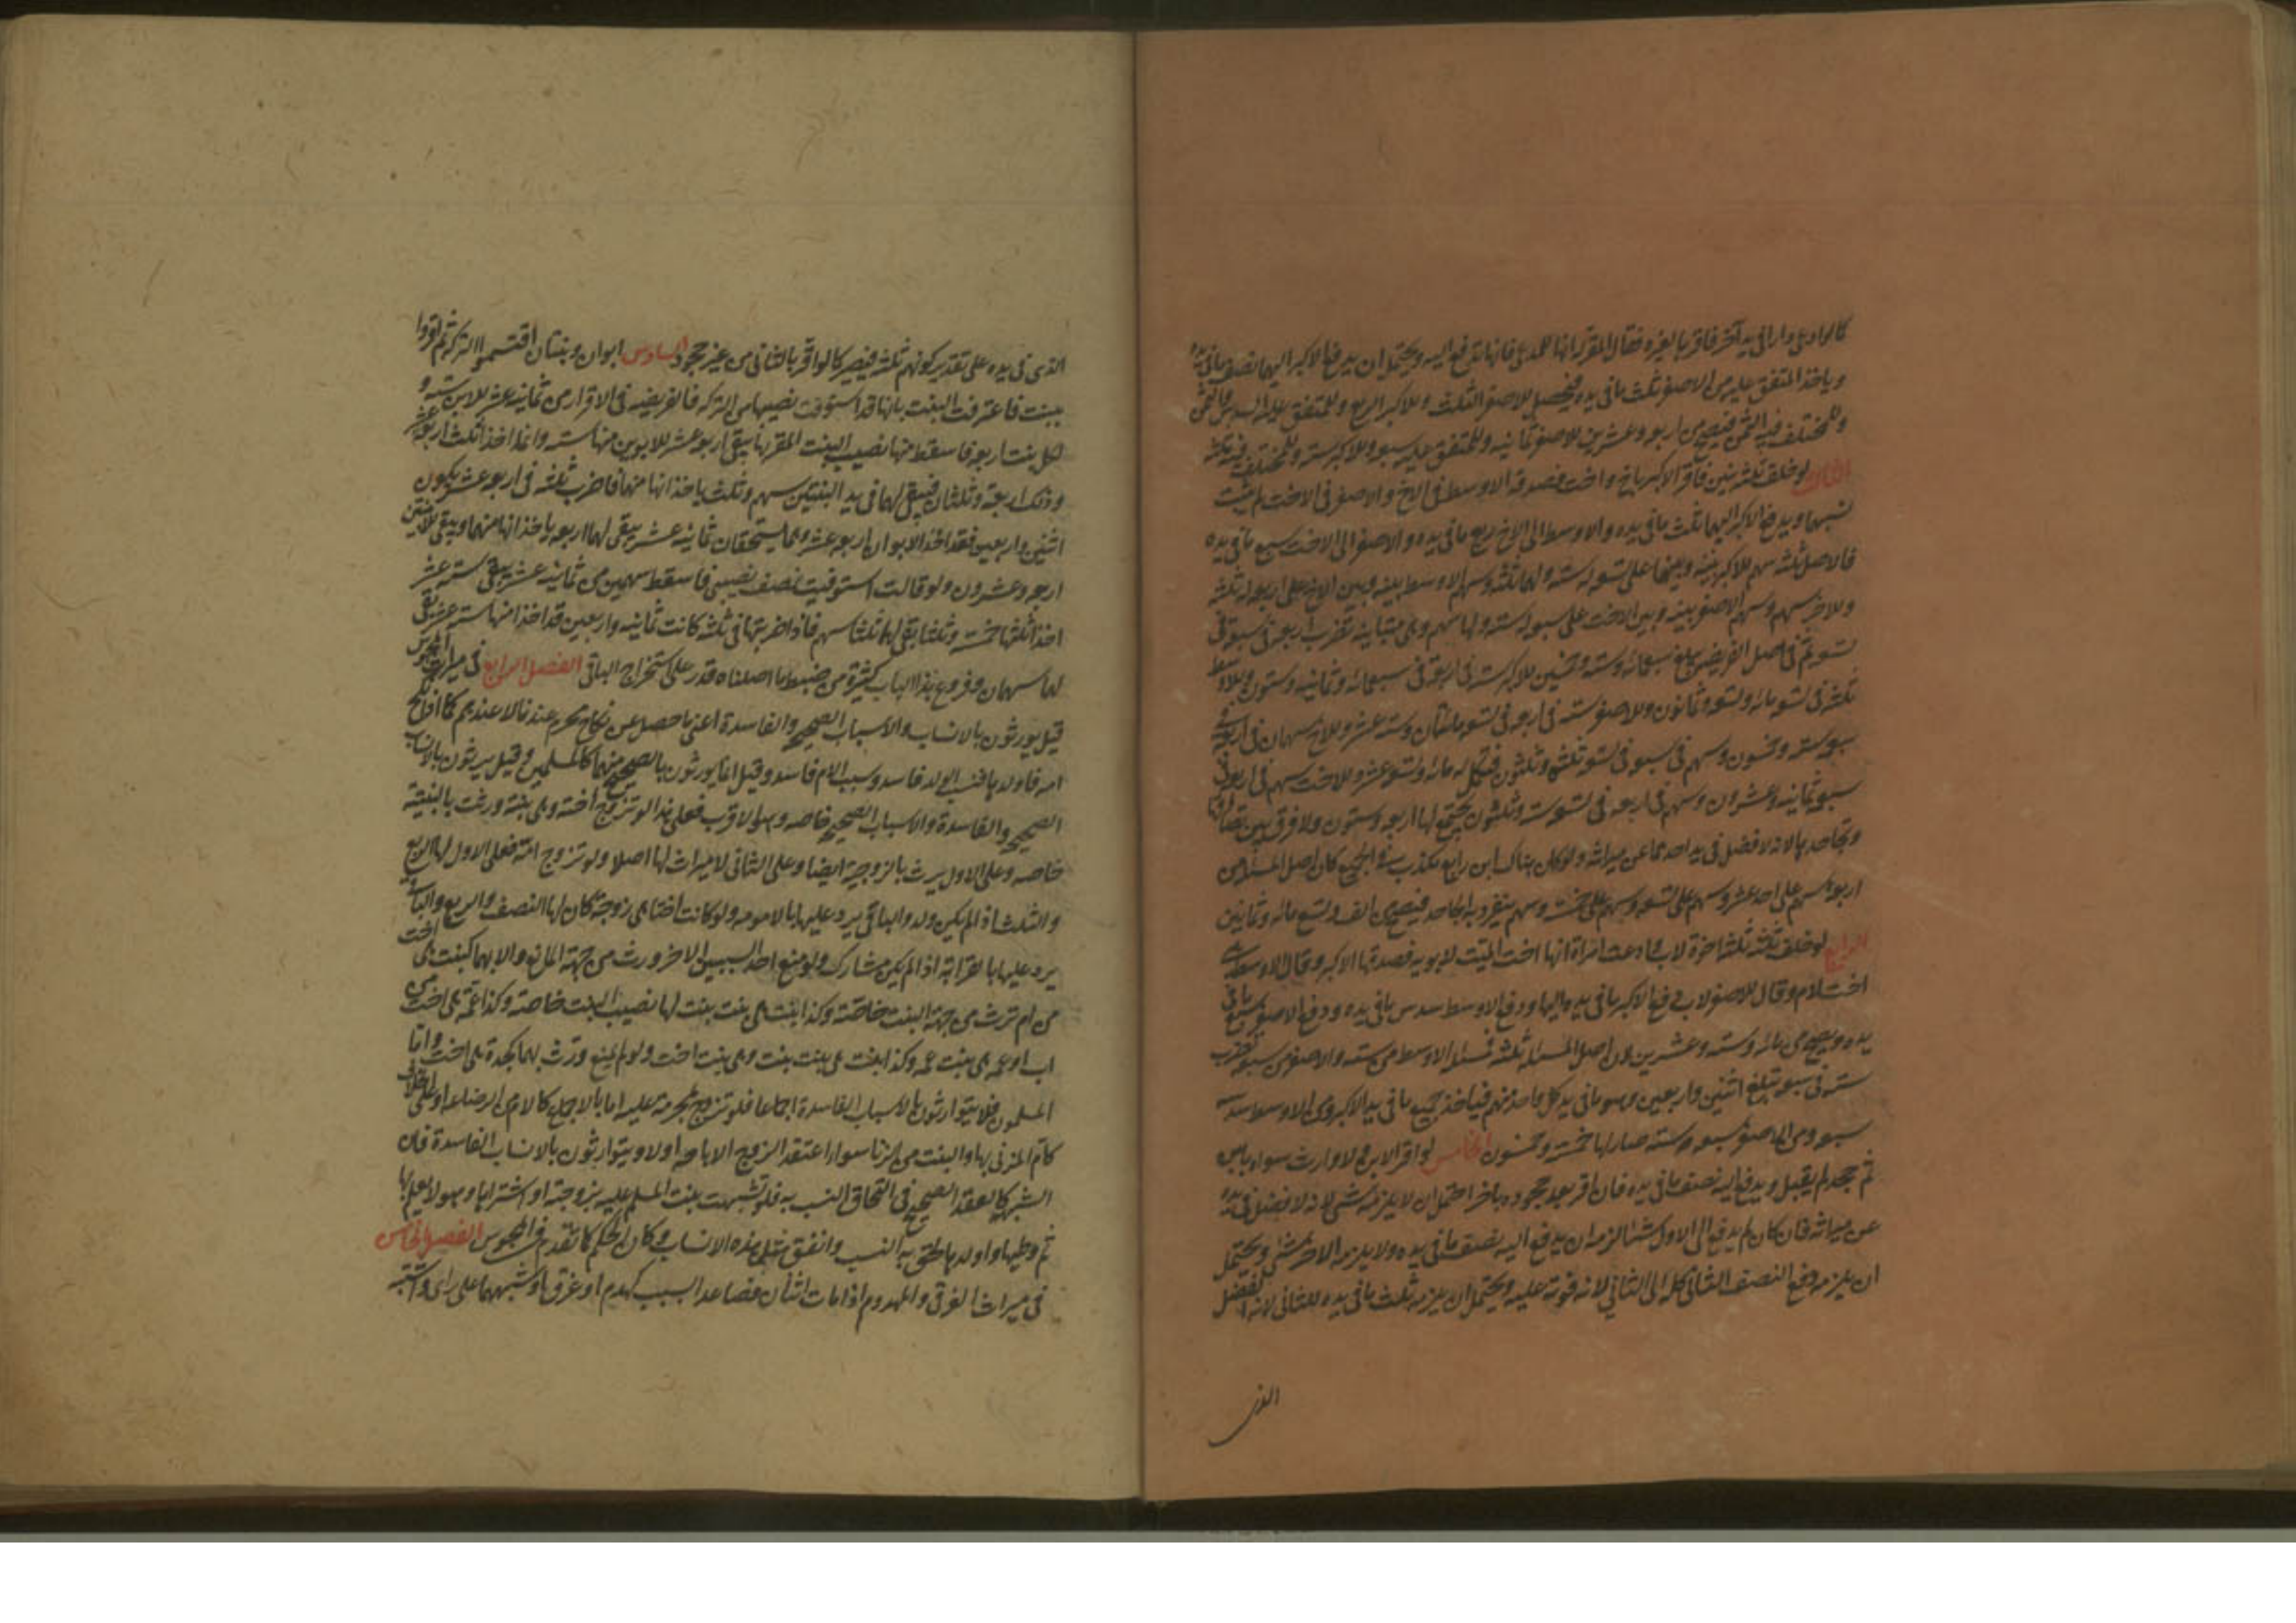 كالوادعى دارا فى يد آخر فاقر بها لغيره فقال المقر له انها للمدعى فانها تدفع اليه ويحتمل ان يدفع الاكبر اليهما نصف مافى يده
وياخذ المتفق عليه من الاصغر ثلث مافى يده فيحصل للاصغر الثلث وللاكبر الربع وللمتفق عليه السدس والثمن
وللمختلف فيه الثمن فتصح من اربعه وعشرين للاصغر ثمانيه وللمتفق عليه سبعه وللاكبر سته وللمختلف فيه ثلثه
الثالث لو خلف ثلثه بنين فاقر الاكبر باخ واخت فصدقه الاوسط فى الاخ والاصغر فى الاخت لم يثبت
نسبهما ويدفع الاكبر اليهما ثلث مافى يده والاوسط الى الاخ ربع مافى يده والاصغر الى الاخت سبع مافى يده
فالاصل ثلثه سهم للاكبر بينه وبينهما على تسعه له سته ولهما ثلثه وسهم الاوسط بينه وبين الاخ على اربعه له ثلثه
وللاخ سهم وسهم الاصغر بينه وبين الاخت على سبعه له سته ولها سهم وهى متباينه تضرب اربعه فى سبعه ثم فى
تسعه ثم فى اصل الفريضه يبلغ سبعمائه وسته وخمسين للاكبر سته فى اربعه فى سبعه مائه وثمانيه وستون وللاوسط
ثلثه فى تسعه مائه وتسعه وثمانون وللاصغر سته فى اربعه فى تسعه مائتان وسته عشر وللاخ سهمان فى اربعه فى
سبعه سته وخمسون وسهم فى سبعه فى تسعه ثلثه وستون فيكمل له مائه وتسعه عشر وللاخت سهم فى اربعه فى
سبعه ثمانيه وعشرون وسهم فى اربعه فى تسعه سته وثلثون يجتمع لها اربعه وستون ولا فرق بين تصادقهما
وتجاحدهما لانه لافضل فى يد احدهما عن ميراثه ولوكان هناك ابن رابع مكذب فى الجميع كان اصل المسئله من
اربعه سهم على احد عشر وسهم على تسعه وسهم على خمسه وسهم ينفرد به الجاحد فيصح من الف وتسع مائه وثمانين
الرابع لو خلف ثلثه اخوة لاب فادعت امراة انها اخت الميت لابويه فصدقها الاكبر وقال الاوسط هى
اخت لام وقال الاصغر لاب دفع الاكبر مافى يده اليها ودفع الاوسط سدس مافى يده ودفع الاصغر سبع مافى
يده وتصح من مائه وسته وعشرين لان اصل المسئله ثلثه فمسئله الاوسط من سته والاصغر من سبعه تضرب
سته فى سبعه تبلغ اثنين واربعين وهو مافى يد كل واحد منهم فتاخذ جميع مافى يد الاكبر ومن الاوسط سدسه
سبعه ومن الاصغر سبعه وسته صار لها خمسه وخمسون الخامس لواقر الابن ولا وارث سواه بابن
ثم جحد لم يقبل ويدفع اليه نصف مافى يده فان اقر بعد جحوده باخر احتمل ان لا يلزمه شئ لانه لافضل فى يده
عن ميراثه فان كان لم يدفع الى الاول شيئا لزمه ان يدفع اليه نصف مافى يده ولا يلزمه للاخر شئ ويحتمل
ان يلزمه دفع النصف الثانى كله الى الثانى لانه فوته عليه ويحتمل ان يلزمه ثلث مافى يده للثانى لانه الفضل
الذى
الذى فى يده على تقدير كونهم ثلثه فيصير كالواقر بالثانى من غير جحود السادس ابوان وبنتان اقتسموا التركه ثم اقروا
ببنت فاعترفت البنت بانها قد استوفت نصيبها من التركه فالفريضه فى الاقرار من ثمانيه عشر للابوين سته و
لكل بنت اربعه فاسقط منها نصيب البنت المقر بها يبقى اربعه عشر للابوين منها سته وانما اخذا ثلث اربعه عشر
وذلك اربعة وثلثان فيبقى لهما فى يد البنتين سهم وثلث ياخذانها منهما فاضرب ثلثه فى اربعه عشر يكون
اثنين واربعين فقد اخذ الابوان اربعه عشر وهما يستحقان ثمانيه عشر يبقى لهما اربعه ياخذانها منهما ويبقى للابنتين
اربعه وعشرون ولو قالت استوفيت نصف نصيبى فاسقط سهمين من ثمانيه عشر يبقى سته عشر
اخذا ثلثها خمسه وثلثا بقى لهما ثلثا سهم فاذا ضربتها فى ثلثه كانت ثمانيه واربعين قد اخذا منها سته عشر بقى
لهما سهمان وفروع هذا الباب كثيرة من ضبط ما اصلناه قدر على استخراج الباقى الفصل الرابع فى ميراث المجوس
قيل يورثون بالانساب والاسباب الصحيحه والفاسدة اعنى ما حصل عن نكاح محرم عندنا لا عندهم كما اذا نكح
امه فاولدها فنسب الولد فاسد وسبب الام فاسد وقيل انما يورثون بالصحيح منهما كالمسلمين وقيل يرثون بالانساب
الصحيحه والفاسدة والاسباب الصحيحه خاصه وهو الاقرب فعلى هذا لو تزوج اخته وهى بنته ورثت بالبنتيه
خاصه وعلى الاول يرث بالزوجيه ايضا وعلى الثانى لا ميراث لها اصلا ولو تزوج امه فعلى الاول لها الربع
والثلث اذا لم يكن ولد والباقى يرد عليها بالامومه ولو كانت اختا هى زوجه كان لها النصف والربع والباقى
يرد عليها بالقرابة اذا لم يكن مشارك ولو منع احد السببين الاخر ورث من جهة المانع والابهما كبنت هى اخت
من ام ترث من جهة البنت خاصة وكذا بنت هى بنت بنت لها نصيب البنت خاصه وكذا عمة هى اخت من
اب اوعمه هى بنت عمه وكذا بنت هى بنت بنت وهى بنت اخت ولو لم يمنع ورث بهما كجدة هى اخت واما
المسلمون فلا يتوارثون بالاسباب الفاسدة اجماعا فلو تزوج محرمة عليه اما بالاجماع كالام من الرضاعه او على الخلاف
كام المزنى بها والبنت من الزنا سواء اعتقد الزوج الاباحه اولا ويتوارثون بالانساب الفاسدة فان
الشبهه كالعقد الصحيح فى التحاق النسب به فلو تشبهت بنت المسلم عليه بزوجته او اشتراها وهو لا يعلم بها
ثم وطيها واولدها لحق به النسب واتفق مثل هذه الانساب وكان الحكم كما تقدم فى المجوس الفصل الخامس
فى ميراث الغرقى والمهدوم اذا مات اثنان فصاعدا بسبب كهدم او غرق او شبههما على راى واشتبه